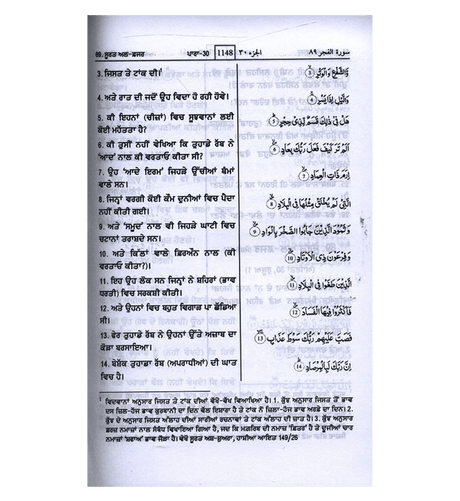 89. ਸੂਰਤ ਅਲ-ਫ਼ਜਰ ਪਾਰਾ-30 1148 الجزء ٣٠ سورة الفجر ٨٩
3. ਜਿਸਤ ਤੇ ਟਾਂਕ ਦੀ।¹
وَّالشَّفْعِ وَالْوَتْرِ ③
4. ਅਤੇ ਰਾਤ ਦੀ ਜਦੋਂ ਉਹ ਵਿਦਾ ਹੋ ਰਹੀ ਹੋਵੇ।
وَالَّيْلِ اِذَا يَسْرِ ④
5. ਕੀ ਇਹਨਾਂ (ਚੀਜ਼ਾਂ) ਵਿਚ ਸੂਝਵਾਨਾਂ ਲਈ
ਕੋਈ ਮਹੱਤਤਾ ਹੈ?
هَلْ فِيْ ذٰلِكَ قَسَمٌ لِّذِيْ حِجْرٍ ⑤
6. ਕੀ ਤੁਸੀਂ ਨਹੀਂ ਵੇਖਿਆ ਕਿ ਤੁਹਾਡੇ ਰੱਬ ਨੇ
'ਆਦ' ਨਾਲ ਕੀ ਵਰਤਾਓ ਕੀਤਾ ਸੀ?
اَلَمْ تَرَ كَيْفَ فَعَلَ رَبُّكَ بِعَادٍ ⑥
7. ਉਹ 'ਆਦੇ ਇਰਮ' ਜਿਹੜੇ ਉੱਚੀਆਂ ਥੰਮਾਂ
ਵਾਲੇ ਸਨ।
اِرَمَ ذَاتِ الْعِمَادِ ⑦
8. ਜਿਨ੍ਹਾਂ ਵਰਗੀ ਕੋਈ ਕੌਮ ਦੁਨੀਆਂ ਵਿਚ ਪੈਦਾ
ਨਹੀਂ ਕੀਤੀ ਗਈ।
الَّتِيْ لَمْ يُخْلَقْ مِثْلُهَا فِي الْبِلَادِ ⑧
9. ਅਤੇ 'ਸਮੂਦ' ਨਾਲ ਵੀ ਜਿਹੜੇ ਘਾਟੀ ਵਿਚ
ਚਟਾਨਾਂ ਤਰਾਬਦੇ ਸਨ।
وَثَمُوْدَ الَّذِيْنَ جَابُوا الصَّخْرَ بِالْوَادِ ⑨
10. ਅਤੇ ਕਿੱਲਾਂ ਵਾਲੇ ਫ਼ਿਰਔਨ ਨਾਲ (ਕੀ
ਵਰਤਾਓ ਕੀਤਾ?)।
وَفِرْعَوْنَ ذِي الْاَوْتَادِ ⑩
11. ਇਹ ਉਹ ਲੋਕ ਸਨ ਜਿਨ੍ਹਾਂ ਨੇ ਸ਼ਹਿਰਾਂ (ਭਾਵ
ਧਰਤੀ) ਵਿਚ ਸਰਕਸ਼ੀ ਕੀਤੀ।
الَّذِيْنَ طَغَوْا فِي الْبِلَادِ ⑪
12. ਅਤੇ ਉਹਨਾਂ ਵਿਚ ਬਹੁਤ ਵਿਗਾੜ ਪਾ ਛੱਡਿਆ
ਸੀ।
فَاَكْثَرُوْا فِيْهَا الْفَسَادَ ⑫
13. ਫੇਰ ਤੁਹਾਡੇ ਰੱਬ ਨੇ ਉਹਨਾਂ ਉੱਤੇ ਅਜ਼ਾਬ ਦਾ
ਕੋੜਾ ਬਰਸਾਇਆ।
فَصَبَّ عَلَيْهِمْ رَبُّكَ سَوْطَ عَذَابٍ ⑬
14. ਬੇਸ਼ੱਕ ਤੁਹਾਡਾ ਰੱਬ (ਅਪਰਾਧੀਆਂ) ਦੀ ਘਾਤ
ਵਿਚ ਹੈ।
اِنَّ رَبَّكَ لَبِالْمِرْصَادِ ⑭
¹ ਵਿਦਵਾਨਾਂ ਅਨੁਸਾਰ ਜਿਸਤ ਤੇ ਟਾਂਕ ਦੀਆਂ ਵੱਖੋ-ਵੱਖ ਵਿਆਖਿਆ ਹੈ। 1. ਕੁੱਝ ਅਨੁਸਾਰ ਜਿਸਤ ਤੋਂ ਭਾਵ
ਦਸ ਜ਼ਿਲ-ਹੱਜ ਭਾਵ ਕੁਰਬਾਨੀ ਦਾ ਦਿਨ ਵੱਲ ਇਸ਼ਾਰਾ ਹੈ ਤੇ ਟਾਂਕ ਨੌਂ ਜ਼ਿਲ-ਹੱਜ ਭਾਵ ਅਰਫ਼ੇ ਦਾ ਦਿਨ। 2.
ਕੁੱਝ ਦੇ ਅਨੁਸਾਰ ਜਿਸਤ ਅੱਲਾਹ ਦੀਆਂ ਸਾਰੀਆਂ ਰਚਨਾਵਾਂ ਤੇ ਟਾਂਕ ਅੱਲਾਹ ਦੀ ਜ਼ਾਤ ਹੈ। 3. ਕੁੱਝ ਅਨੁਸਾਰ
ਫ਼ਰਜ਼ ਨਮਾਜ਼ਾਂ ਨਾਲ ਸੰਬੰਧ ਵਿਖਾਇਆ ਗਿਆ ਹੈ, ਜਦ ਕਿ ਮਗ਼ਰਿਬ ਦੀ ਨਮਾਜ਼ 'ਵਿਤਰ' ਹੈ ਤੇ ਦੂਜੀਆਂ ਚਾਰ
ਨਮਾਜ਼ਾਂ 'ਸ਼ਫ਼ਆ' ਭਾਵ ਜੋੜਾ ਹੈ। ਵੇਖੋ ਸੂਰਤ ਅਸ਼-ਸ਼ੁਅਰਾ, ਹਾਸ਼ੀਆ ਆਇਤ 149/26